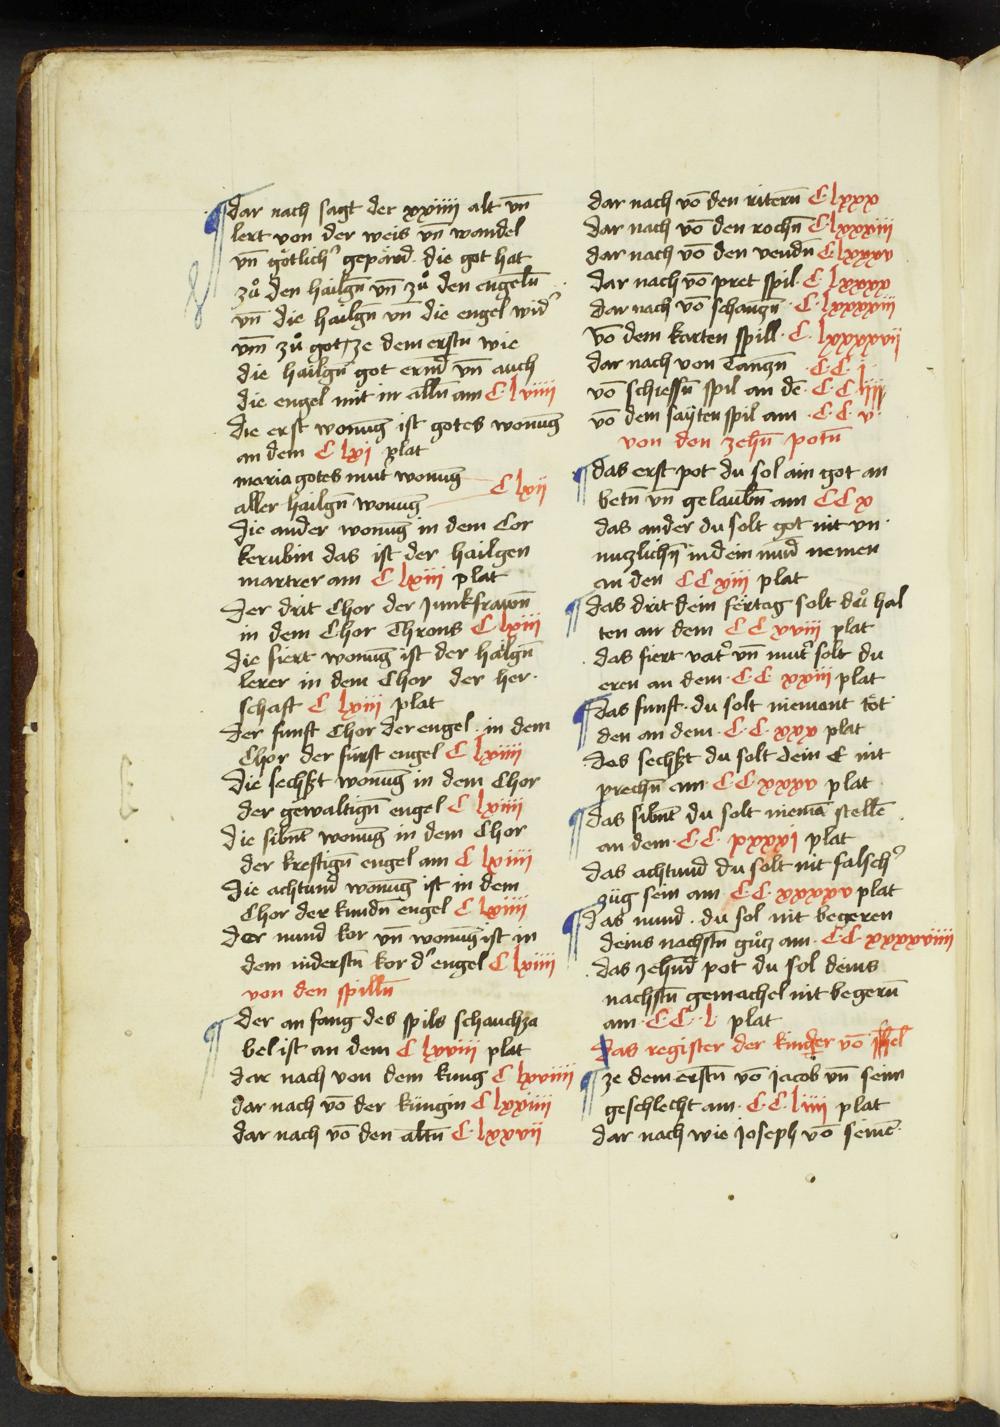 dar nach sagt der xxiiii alt vn̄
lert von der weis vn̄ wandel
vn̄ götlichʼ gepärd. die got hat
zů den hailgn̄ vn̄ zů den engeln̄
vn̄ die hailgn̄ vn̄ die engel widʼ
vm̄ zů got / ze dem erstn̄ wie
die hailgn̄ got ernd̄ vn̄ auch
die engel mit in alln̄ am C lviiii
die erst wonūg ist gotes wonūg
an dem C lxi plat
maria gotes mutʼ wonūg
aller hailgn̄ wonūg C lxii
die ander wonūg in dem Cor
kerubin das ist der hailgen
martrer am C lxiii plat
der drit Chor der Junkfrawn̄
in dem Chor Throns C lxiii
die fiert wonūg ist der halgn̄
lerer in dem Chor der her-
schaft C lxiii plat
der funft Chor der engel in dem
Chor der fürst engel C lxiiii
die sechst wonūg in dem Chor
der gewaltign̄ engel C lxiiii
die sibnt̄ wonūg in dem Chor
der kreftign̄ engel am C lxiiii
die achtund̄ wonūg ist in dem
Chor der kundn̄ engel C lxiiii
der nund kor vn̄ wonūg ist in
dem niderstn̄ kor dʼ engel C lxiiii
von den spilln̄
der an fang des spils schauchza
bel ist an dem C lxviii plat
dar nach von dem kung C lxviiii
dar nach vō der küngin C lxxiiii
dar nach vō den altn̄ C lxxvii
dar nach vō den ritern̄ C lxxx
dar nach vō den rochn̄ C lxxxiii
dar nach vō den vendn̄ C lxxxv
dar nach vō pret spil C lxxxx
dar nach vō schanzn̄ C lxxxxiii
vō dem karten spill C lxxxxvii
dar nach von Tanzn̄ C C i
vō schiessn̄ spil an dē C C iiii
vō dem saÿten spil am C C v
von den zehn̄ potn̄
das erst pot du sol ain got an
betn̄ vn̄ gelaubn̄ am C C x
das ander du solt got nit vn
nuczlichn̄ in dein mūd nemen
an den C C xiii plat
das drit dein fërtag solt dů hal
ten an dem C C xviii plat
das fiert vatʼ vn̄ mutʼ solt du
eren an dem C C xxiii plat
das funft du solt niemant töt
den an dem C C xxx plat
das sechst du solt dein E nit
prechn̄ am C C xxxv plat
das sibnt̄ du solt niemā stellē
an dem C C xxxxi plat
das achtund̄ du solt nit falschʼ
züg sein am C C xxxxv plat
das nund du sol nit begeren
deins nachstn̄ gůcz am C C xxxxviiii
das zehnd̄ pot du sol deins
nachstn̄ gemachel nit begern̄
am C C l plat
das register der kinder vō
ze dem erstn̄ vō Jacob vn̄ seim
geschlecht am C C liiii plat
dar nach wie Joseph vō seinē